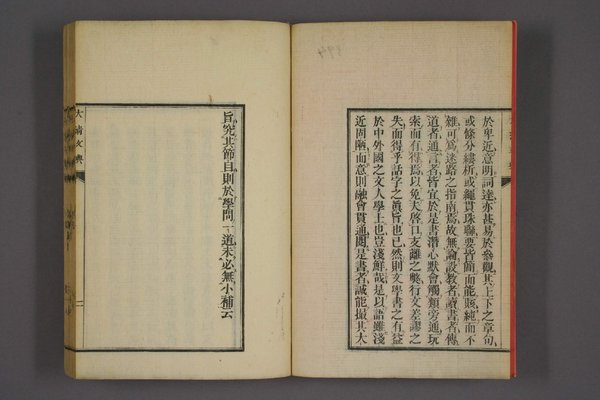 於卑近意明詞達亦甚易於參觀其上下之章句
或條分縷析或繩貫珠聯要皆簡而能賅純而不
雜可爲迷路之指南焉故無論設教者讀書者傳
道者通言者皆宜於是書潛心默會觸類旁通玩
索而有得焉以免夫啓口支離之獘行文差謬之
失而得乎話字之眞旨也已然則文學書之有益
於中外國之文人學士也豈淺鮮哉是以語雖淺
近固陋而意則融會貫通閱是書者誠能撮其大
旨究其節目則於學問一道未必無小補云
大淸文典
二